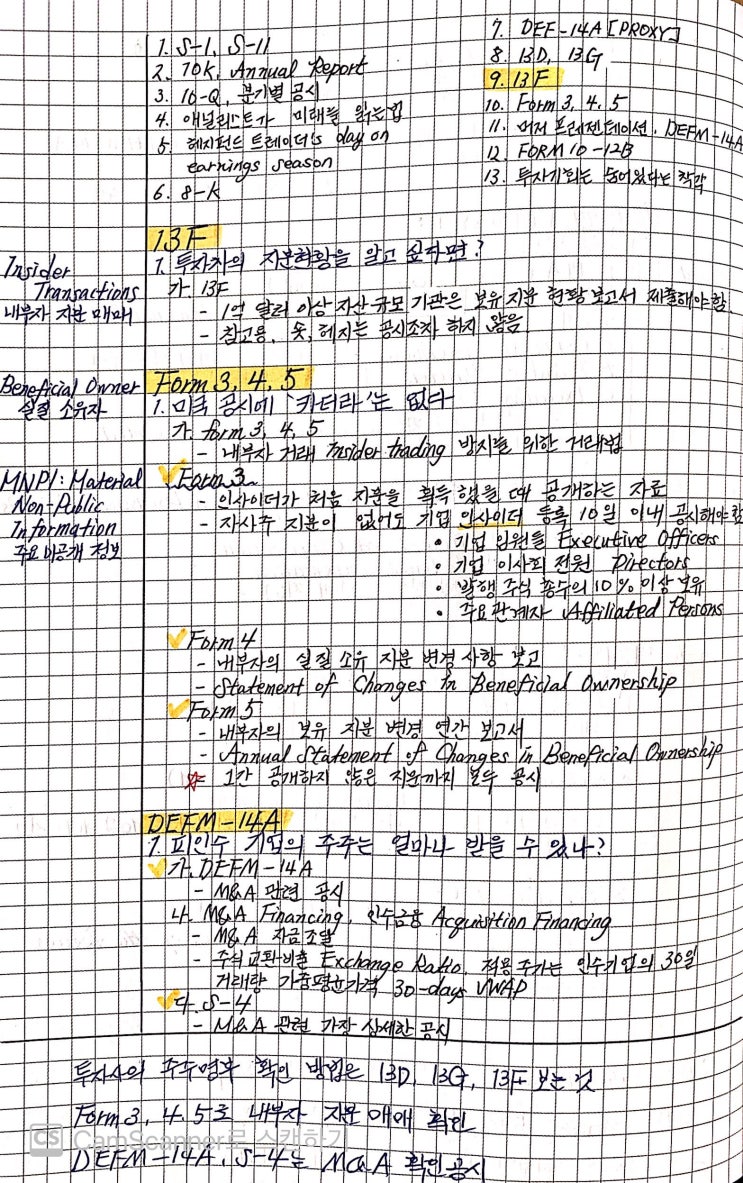 1. S-1, S-11
2. 10K, Annual Report
3. 10-Q, 분기별 공시
4. 애널리스트가 미래를 읽는 법
5. 헤지펀드 트레이더's day on
earnings season
6. 8-K
7. DEF-14A [PROXY]
8. 13D, 13G
9. 13F
10. Form 3, 4, 5
11. 머저 프레젠테이션, DEFM-14A
12. FORM 10-12B
13. 투자기회는 숨어있다는 착각
13F
1. 투자자의 지분현황을 알고 싶다면?
가. 13F
- 1억 달러 이상 자산 규모 기관은 보유 지분 현황 보고서 제출해야 함
- 참고용, 숏, 헤지는 공시조차 하지 않음
Insider
Transactions
내부자 지분 매매
Form 3, 4, 5
1. 미국 공시에 '카더라'는 없다
가. form 3, 4, 5
- 내부자 거래 Insider trading 방지를 위한 거래법
Beneficial Owner
실질 소유자
Form 3
- 인사이더가 처음 지분을 획득 했을 때 공개하는 자료
- 자사주 지분이 없어도 기업 인사이더 등록 10일 이내 공시해야 함
• 기업 임원들 Executive Officers
• 기업 이사회 전원 Directors
• 발행 주식 총수의 10% 이상 보유
• 주요관계자 Affiliated Persons
MNPI: Material
Non-Public
Information
주요 비공개 정보
Form 4
- 내부자의 실질 소유 지분 변경 사항 보고
- Statement of Changes in Beneficial Ownership
Form 5
- 내부자의 보유 지분 변경 연간 보고서
- Annual Statement of Changes in Beneficial Ownership
☆ 그간 공개하지 않은 지분까지 모두 공시
DEFM-14A
1. 피인수 기업의 주주는 얼마나 받을 수 있나?
가. DEFM-14A
- M&A 관련 공시
나. M&A Financing, 인수금융 Acquisition Financing
- M&A 자금조달
- 주식교환비율 Exchange Ratio, 적용 주가는 인수기업의 30일
거래량 가중평균가격 30-days VWAP
다. S-4
- M&A 관련 가장 상세한 공시
투자사의 주주명부 확인 방법은 13D, 13G, 13F 보는 것
Form 3, 4, 5로 내부자 지분 매매 확인
DEFM-14A, S-4는 M&A 확인 공시
CS CamScanner로 스캔하기